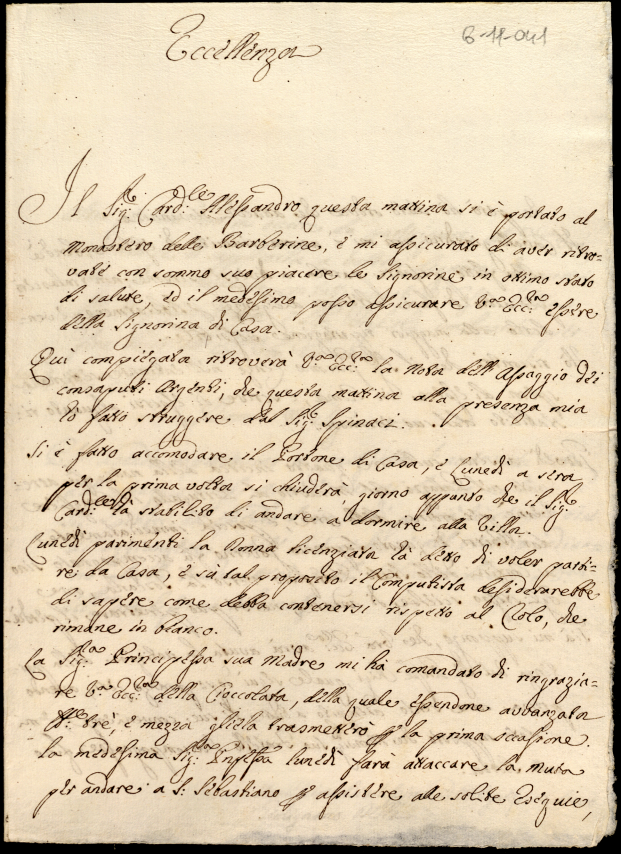 Eccellenza
6-11-041
Il Sig.r Card.le Alessandro questa mattina si è portato al
Monastero delle Barberine, e mi assicurato di aver ritro=
vate con sommo suo piacere le Signorine in ottimo stato
di salute, ed il medesimo posso assicurare V.ra Ecc.za essere
della Signorina di Casa.
Qui compiegata ritroverà V.ra Ecc.za la Nota dell'Assaggio dei
consaputi Argenti, che questa mattina alla presenza mia
hò fatto struggere dal Sig.r Spinaci.
Si è fatto accomodare il Portone di Casa, e Lunedì a sera
per la prima volta si chiuderà, giorno appunto che il Sig.r
Card.le hà stabilito di andare a dormire alla Villa.
Lunedì parimenti la Donna licenziata hà detto di voler parti=
re da Casa, e sù tal proposito il Computista desiderarebbe
di sapere come debba contenersi rispetto al Rolo, che
rimane in bianco.
La Sig.ra Principessa sua Madre mi ha comandato di ringrazia=
re V.ra Ecc.za della Cioccolata, della quale essendone avvanzata
trè, e mezza glie la trasmetterò per la prima occasione.
La medesima Sig.ra Pnsessa lunedì farà attaccare la muta
per andare a S. Sebastiano per assistere alle solite Esequie,